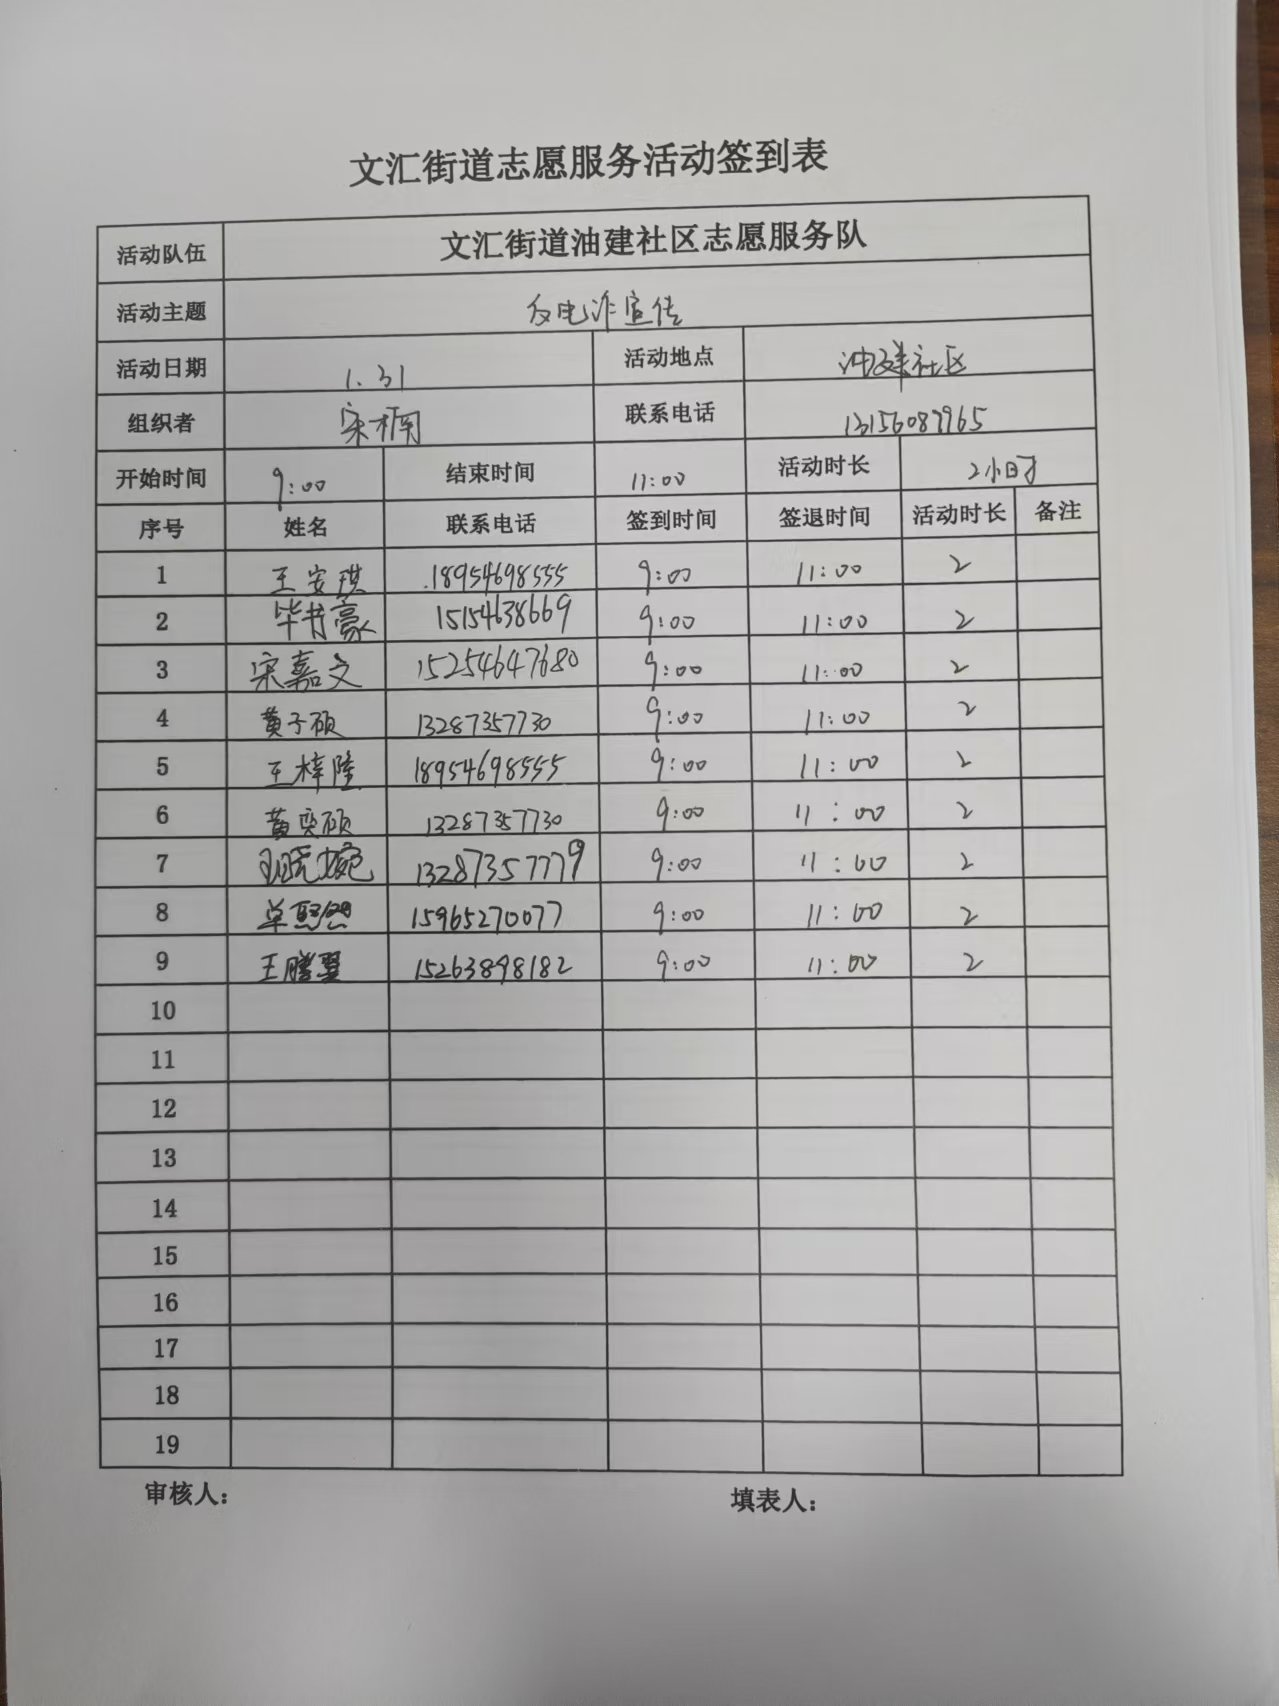 文汇街道志愿服务活动签到表
活动队伍 文汇街道油建社区志愿服务队
活动主题 反电诈宣传
活动日期 1.31 活动地点 油建社区
组织者 宋楠 联系电话 13156087965
开始时间 9:00 结束时间 11:00 活动时长 2小时
序号 姓名 联系电话 签到时间 签退时间 活动时长 备注
1 王安琪 18954698555 9:00 11:00 2
2 毕书豪 15154638669 9:00 11:00 2
3 宋嘉文 15254647680 9:00 11:00 2
4 黄子硕 13287357730 9:00 11:00 2
5 王梓隆 18954698555 9:00 11:00 2
6 黄奕硕 13287357730 9:00 11:00 2
7 13287357779 9:00 11:00 2
8 单 15965270077 9:00 11:00 2
9 王腾翌 15263898182 9:00 11:00 2
10
11
12
13
14
15
16
17
18
19
审核人： 填表人：